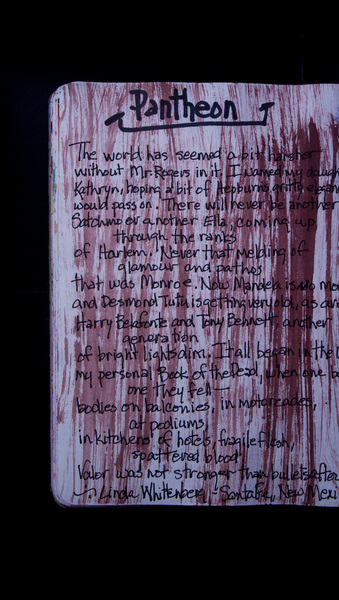 Pantheon
The world has seemed a bit harsher
without Mr. Rogers in it. I named my daugh
Kathryn, hoping a bit of Hepburn's gritty elegan
would pass on. There will never be another
Satchmo or another Ella, coming up
through the ranks
of Harlem. Never that melding of
glamour and pathos
that was Monroe. Now Mandela is no mo
and Desmond Tutu is getting very old, as are
Harry Belafonte and Tony Bennett, another
generation
of bright lights dim. It all began in the
my personal Book of the Dead, when one b
one They fell—
bodies on balconies, in motorcades,
at podiums,
in kitchens of hotels, fragile flesh,
spattered blood
Valor was not stronger than bullets after
Linda Whittenberg - Santa Fe, New Mexi